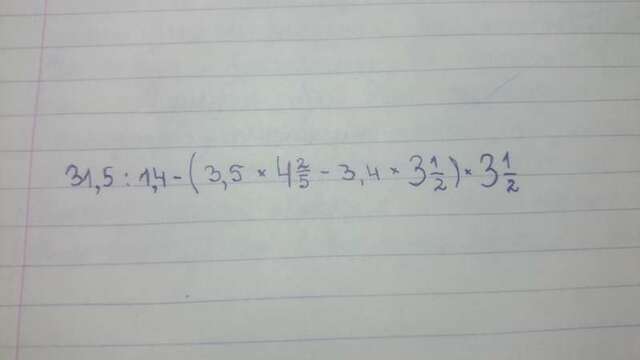 31,5 : 1,4 - ( 3,5 × 4 2/5 - 3,4 × 3 1/2 ) × 3 1/2